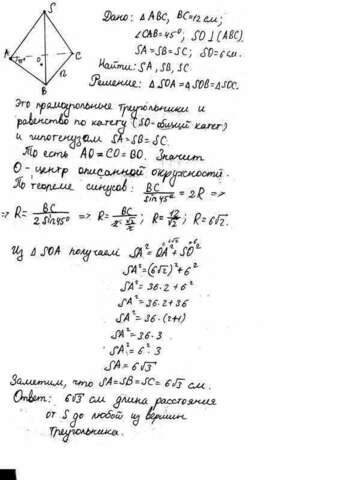 S
A
45°
O
C
12
B
Дано: △ABC, BC=12 см;
∠CAB=45°; SO⊥(ABC).
SA=SB=SC; SO=6см.
Найти: SA, SB, SC
Решение: △SOA=△SOB=△SOC.
Это прямоугольные треугольники и
равенство по катету (SO-общий катет)
и гипотенузам SA=SB=SC.
То есть AO=CO=BO. Значит
O-центр описанной окружности.
По теореме синусов: BC/sin45° = 2R =>
=> R= BC/2sin45° => R= BC/2·√2/2; R= 12/√2; R=6√2.
Из △SOA получаем SA²=OA²+SO²
6√2 6
SA²=(6√2)²+6²
SA²=36·2+6²
SA²=36·2+36
SA²=36·(2+1)
SA²=36·3
SA²=6²·3
SA=6√3
Заметим, что SA=SB=SC=6√3 см.
Ответ: 6√3 см длина расстояния
от S до любой из вершин
треугольника.